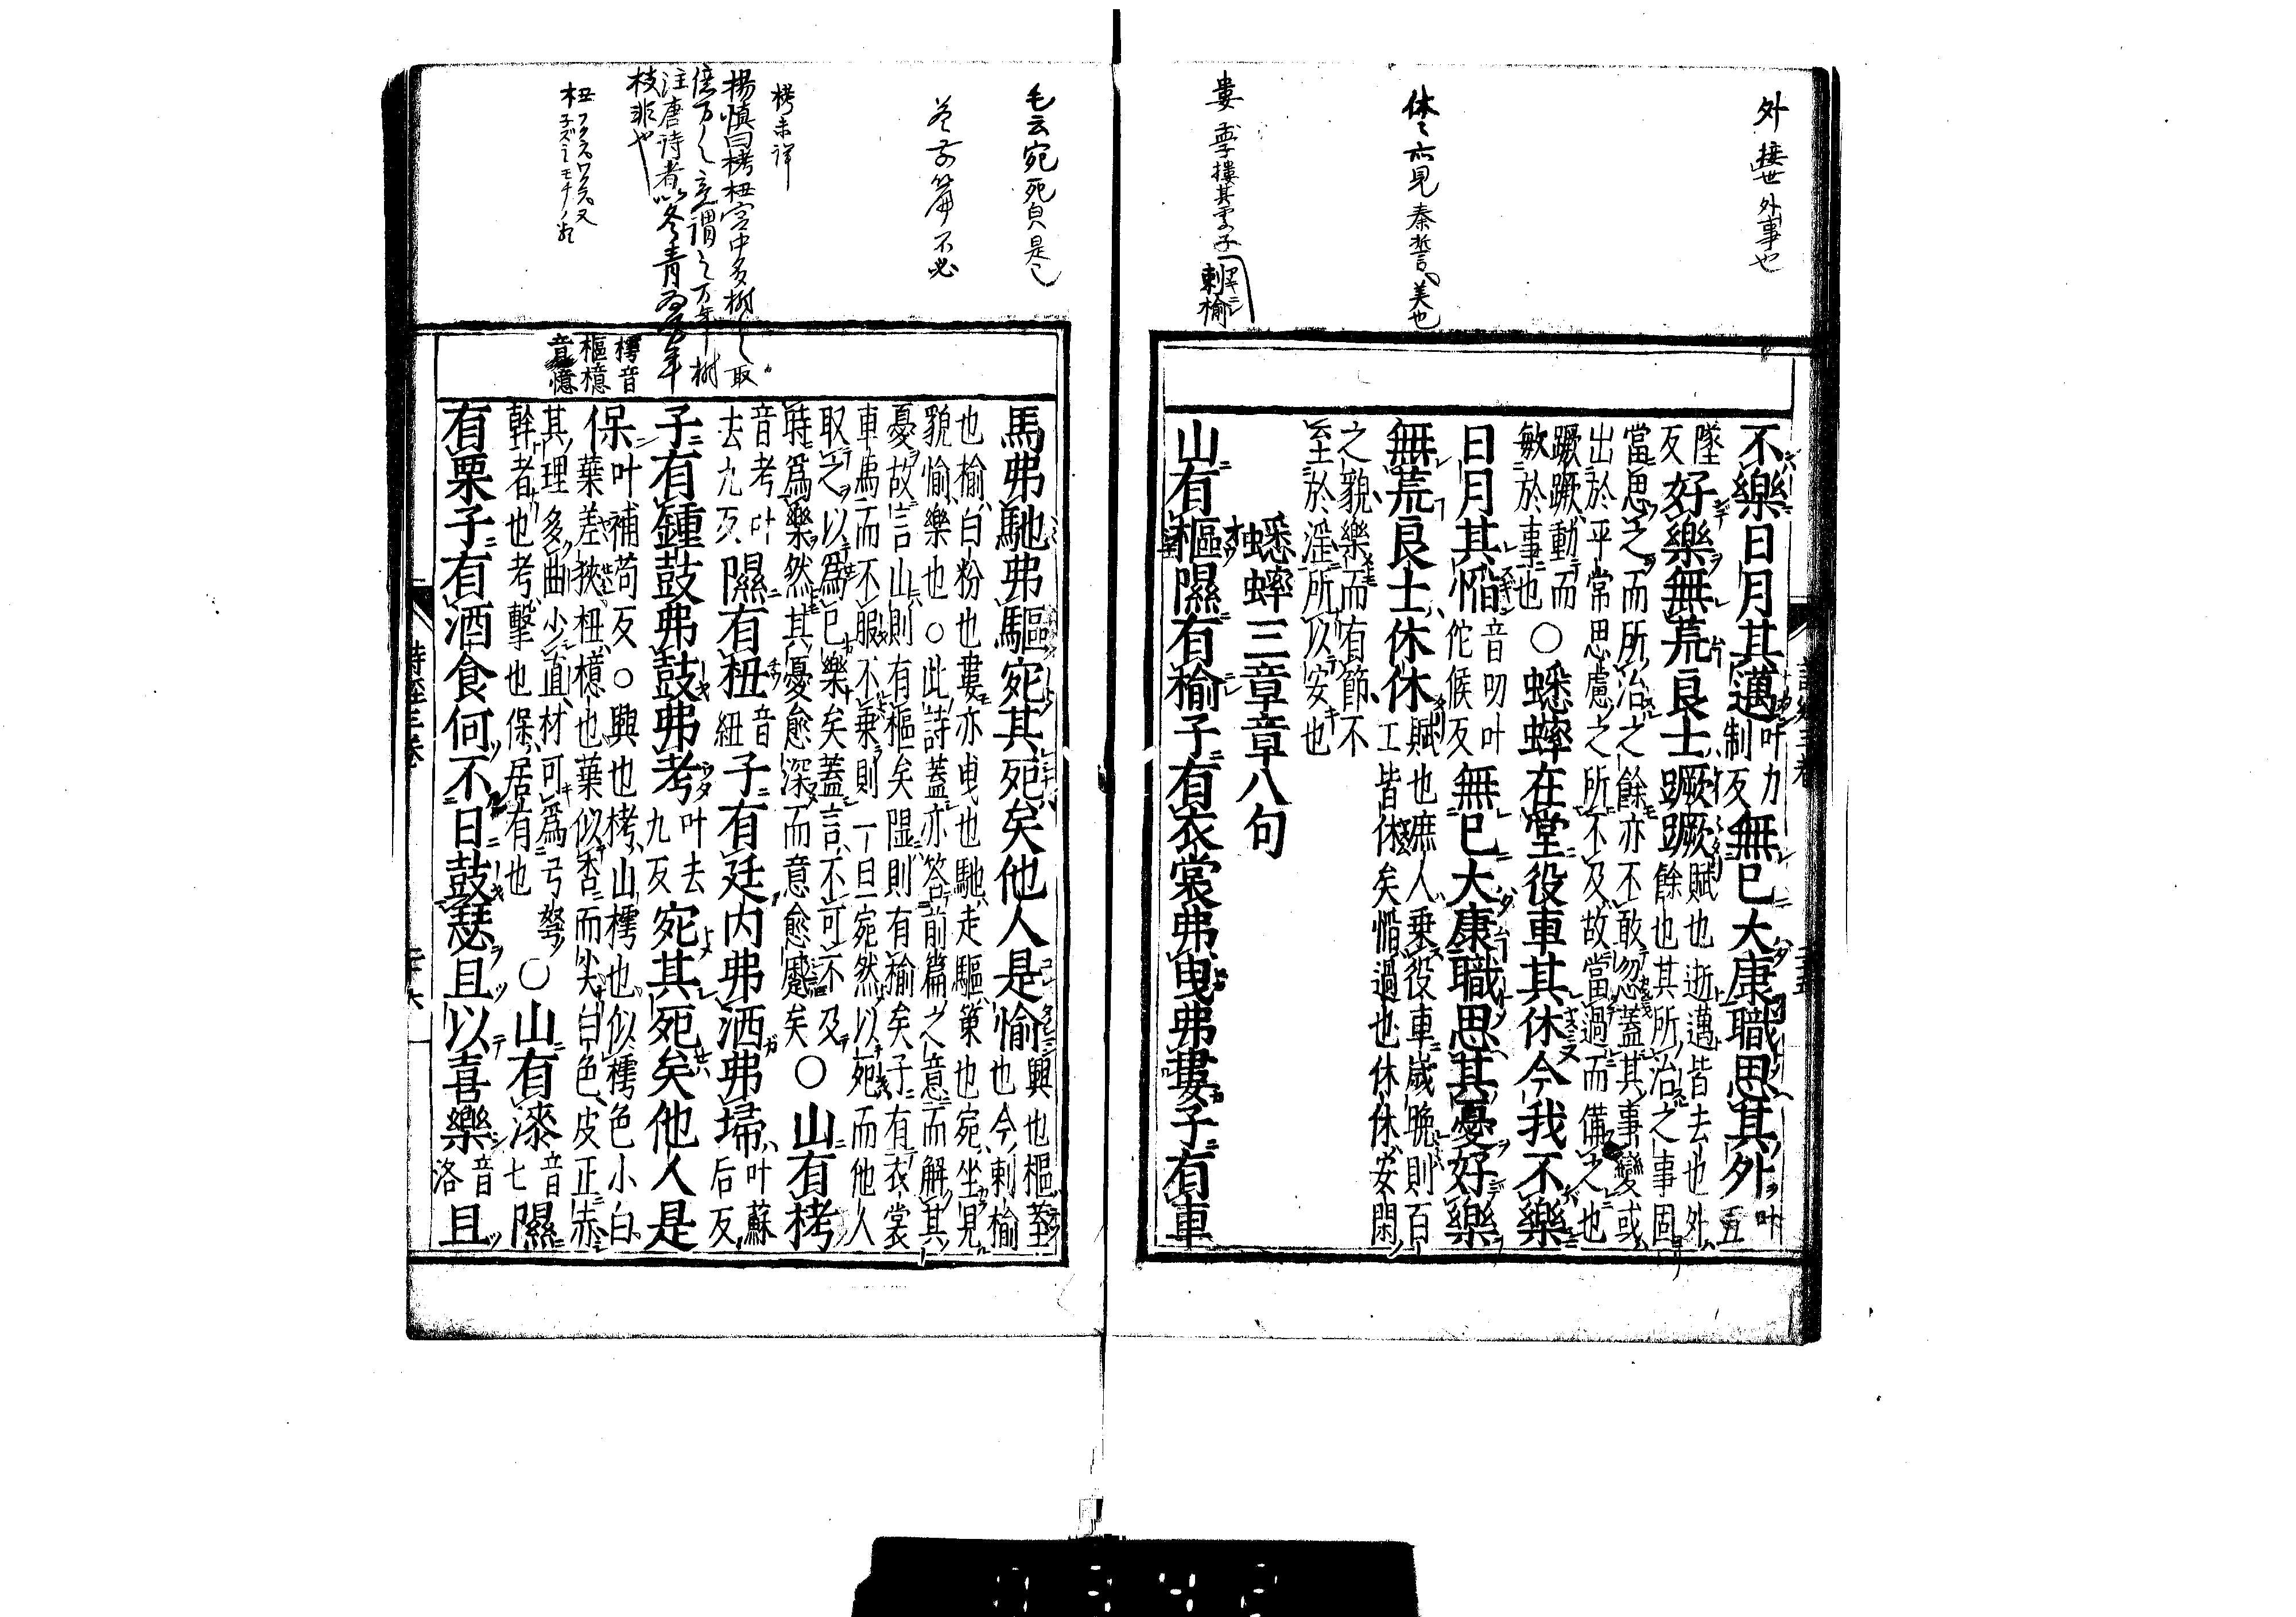 外 接世外事也
休々亦見秦誓美也
婁 孟子摟其處子
刺榆
不樂日月其邁叶力
制反無已大康職思其外叶五
墜
反好樂無荒良士蹶蹶賦也逝邁皆去也外
餘也其所治之事固
當思之而所治之餘亦不敢忽蓋其事變或
出於平常思慮之所不及故當過而備之也
蹶蹶動而
敏於事也○蟋蟀在堂役車其休今我不樂
日月其慆音叨叶
佗候反無已大康職思其憂好樂
無荒良士休休賦也庶人乗役車歳晩則百
工皆休矣慆過也休休安閑
之貌樂而有節不
至於淫所以安也
蟋蟀三章章八句
山有樞隰有楡子有衣裳弗曳弗婁子有車
毛云宛死貌是也
答前篇不必
栲未詳
楊慎曰栲杻宮中多樹之取
億万之意謂之万年樹
注唐詩者以冬青為万年
枝非也
樗音
樞檍
音憶
馬弗馳弗驅宛其死矣他人是愉興也樞荎
也今刺楡
也楡白枌也婁亦曳也馳走驅策也宛坐見
貌愉樂也○此詩蓋亦答前篇之意而解其
憂故言山則有樞矣隰則有楡矣子有衣裳
車馬而不服不乗則一旦宛然以死而他人
取之以爲已樂矣蓋言不可不及
時爲樂然其憂愈深而意愈蹙矣○山有栲
音考叶
去九反隰有杻音
紐子有廷内弗洒弗埽叶蘇
后反
子有鍾鼓弗鼓弗考叶去
九反宛其死矣他人是
保叶補苟反○興也栲山樗也似樗色小白
葉差狹杻檍也葉似杏而尖白色皮正赤
其理多曲少直材可爲弓弩
幹者也考擊也保居有也○山有漆音
七隰
有栗子有酒食何不日鼓瑟且以喜樂音
洛且